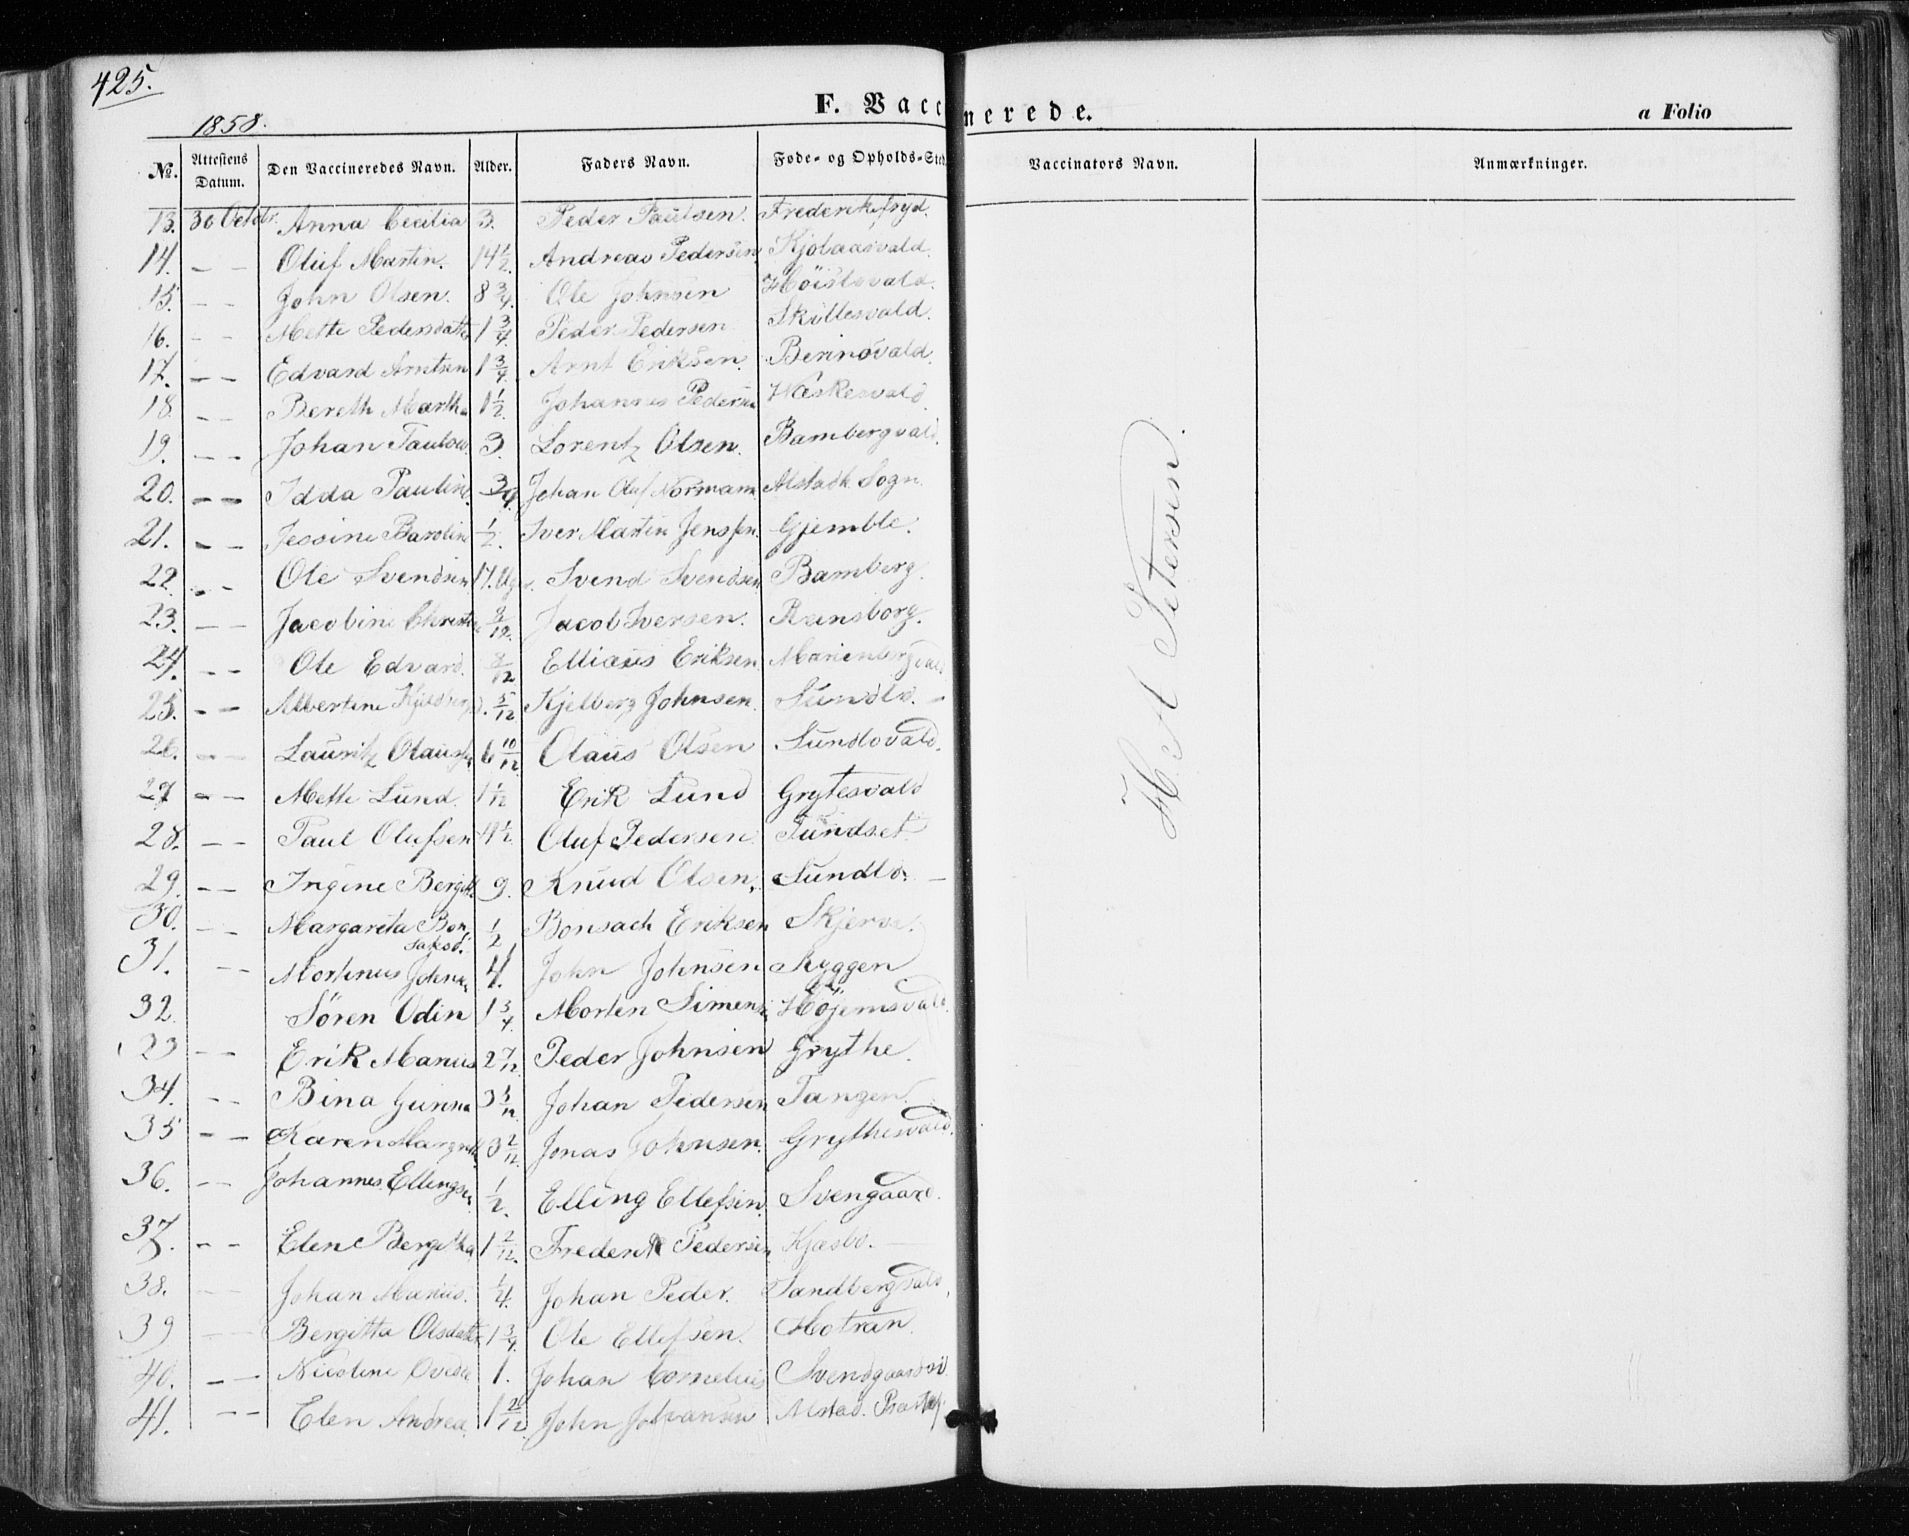 425.
1858.
F. Vaccinerede. a Folio
No. Attestens Datum. Den Vaccineredes Navn. Alder. Faders Navn. Føde- og Opholds-Sted. Vaccinators Navn. Anmærkninger.
13. 30 Octbr. Anna Cecilia 3. Peder Paulsen. Frederiksfryd.
14. — — Oluf Martin. 14 1/2. Andreas Pedersen
15. — — John Olsen. 8 3/4. Ole Johnsen
16. — — Mette Pedersdatter 1 3/4. Peder Pedersen
17. — — Edvard Arntsen 1 3/4. Arnt Eriksen.
18. — — Bereth Martha 1 1/2. Johannes Pedersen
19. — — Johan 3. Lorentz Olsen. Bambergvald.
20. — — Idda Pauline 3/4. Johan Oluf Normann Alstadh. Sogn.
21. — — Jessine 1/2. Iver Martin Jenssen. Gjemble.
22. — — Ole Svendsen 17. Ug. Svend Svendsen Bamberg.
23. — — Jacobine 8/12. Jacob Iversen. Ramsborg.
24. — — Ole Edvard. 8/12 Elliaus Eriksen. Marienbergvald
25. — — Albertine 5/12 Kjelberg Johnsen. Sundlo. —
26. — — Lauritz Olaussen 6 10/12 Olaus Olsen Sundlovald.
27 — — Mette Lund. 1 1/12 Erik Lund Grytesvald
28. — — Paul Olufsen 4 1/2. Oluf Pedersen Tundset
29. — — Ingine Bergitte 9. Knud Olsen. Sundlo. —
30. — — Margareta Bonsaksd. 1/2 Bonsach Eriksen Skjerve.
31. — — Mortinus Johnsen 4. John Johnsen Ryggen
32. Søren Odin 1 3/4. Morten Simens. Höjemsvald.
33 — — Erik Manus 2 7/12 Peder Johnsen Grythe.
34. — — Bina Gurina 3 1/12 Johan Pedersen Tangen.
35 — — Karen Margreth 3 2/12. Jonas Johnsen. Grythesvald.
36. — — Johannes Ellingsen 1/2. Elling Ellefsen. Svengaard.
37. — — Elen Bergitha 1 2/12. Frederik Pedersen Kjæsbo. —
38. — — Johan Marius. 1/4. Johan Peder. Sandbergvald.
39 — — Bergitta Olsdatter 1 3/4. Ole Ellefsen. Hotran.
40. — — Nicoline 1. Johan Cornelius
41. — — Elen Andrea. John Johansen Alstad.
H. A Petersen.